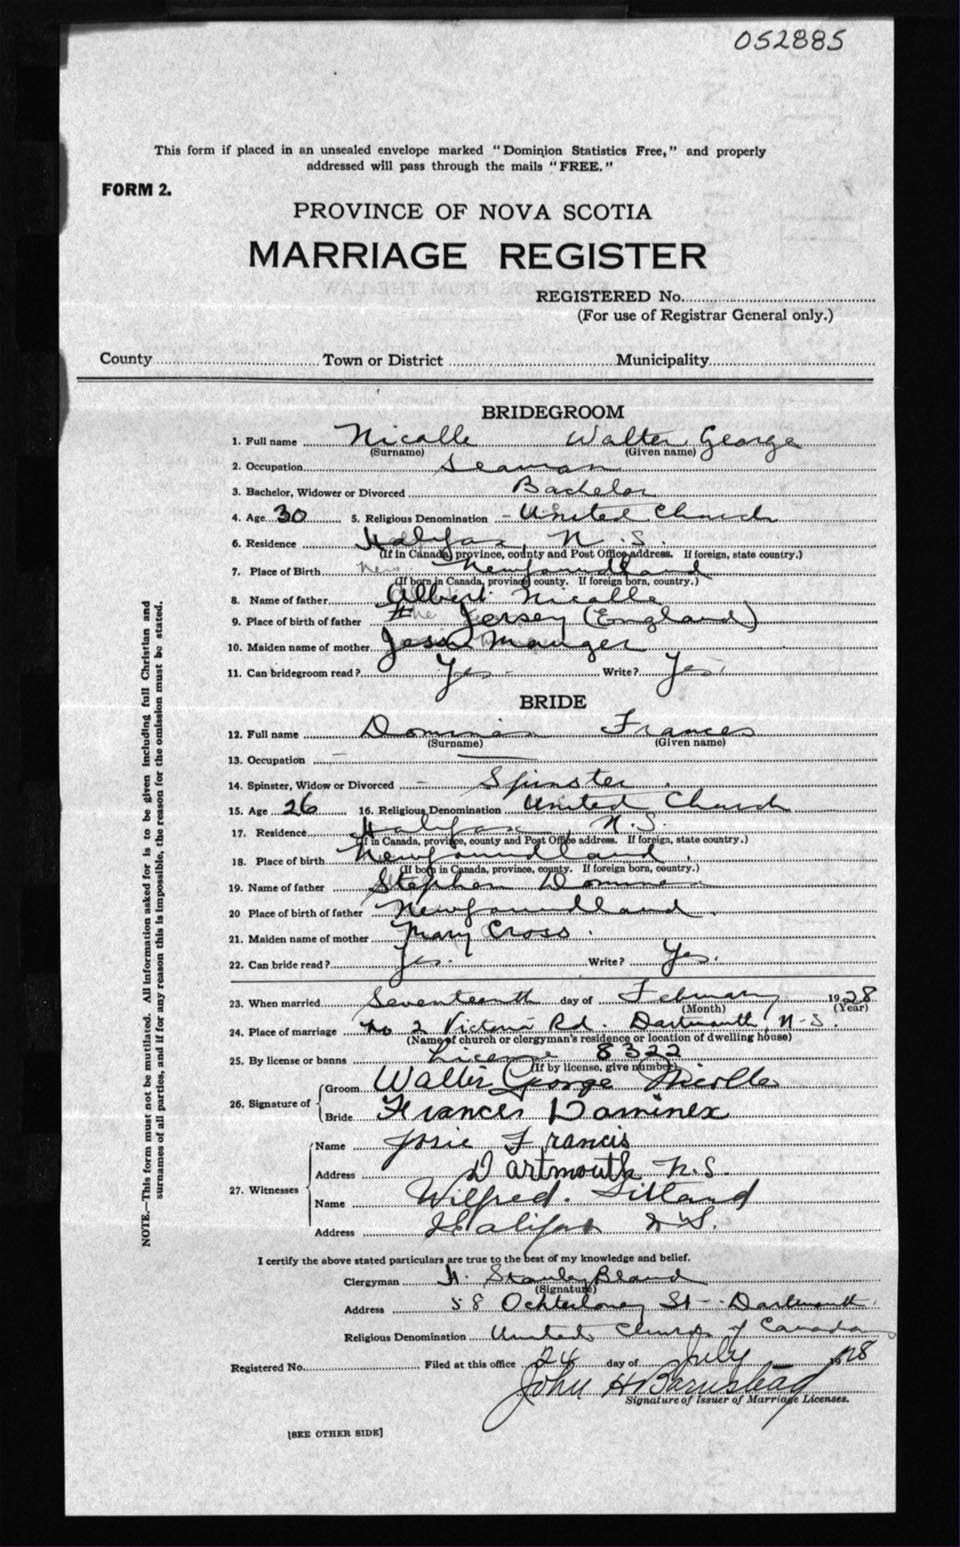 052885
This form if placed in an unsealed envelope marked "Dominion Statistics Free," and properly
addressed will pass through the mails "FREE."
FORM 2.
PROVINCE OF NOVA SCOTIA
MARRIAGE REGISTER
REGISTERED No.
(For use of Registrar General only.)
County Town or District Municipality
BRIDEGROOM
1. Full name Nicolle Walter George
(Surname) (Given name)
2. Occupation Seaman
3. Bachelor, Widower or Divorced Bachelor
4. Age 30 5. Religious Denomination - United Church
6. Residence Halifax, N.S.
(If in Canada, province, county and Post Office address. If foreign, state country.)
7. Place of Birth New Newfoundland
(If born in Canada, province county. If foreign born, country.)
8. Name of father Albert Nicolle
9. Place of birth of father Jersey (England)
10. Maiden name of mother Mauger
11. Can bridegroom read? Yes - Write? Yes.
BRIDE
12. Full name Frances
(Surname) (Given name)
13. Occupation —
14. Spinster, Widow or Divorced - Spinster.
15. Age 26 16. Religious Denomination United Church
17. Residence Halifax N.S.
(If in Canada, province, county and Post Office address. If foreign, state country.)
18. Place of birth Newfoundland.
(If born in Canada, province, county. If foreign born, country.)
19. Name of father Stephen
20 Place of birth of father Newfoundland.
21. Maiden name of mother Mary Cross.
22. Can bride read? Yes. Write? Yes.
23. When married Seventeenth day of February 1928
(Month) (Year)
24. Place of marriage No 2 Victoria Rd. Dartmouth, N.S.
(Name of church or clergyman's residence or location of dwelling house)
25. By license or banns License 8322
(If by license, give number)
26. Signature of
Groom Walter George Nicolle
Bride Frances Dominex
27. Witnesses
Name Josie Francis
Address Dartmouth N.S.
Name Wilfred.
Address Halifax N.S.
I certify the above stated particulars are true to the best of my knowledge and belief.
Clergyman H. Stanley Bland
(Signature)
Address 58 Ochterloney St - Dartmouth.
Religious Denomination United Church of Canada
Registered No. Filed at this office 24 day of July 1928
John H Barnstead
Signature of Issuer of Marriage Licenses.
[SEE OTHER SIDE]
NOTE.—This form must not be mutilated. All information asked for is to be given including full Christian and
surnames of all parties, and if for any reason this is impossible, the reason for the omission must be stated.